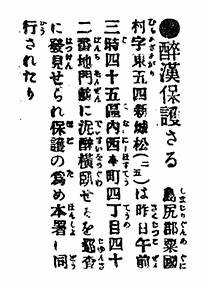 ●醉漢保護さる 島尻郡粟國
村字東五四新城松(二五)は昨日午前
三時四十五區内西本町四丁目四十
二番地門に泥醉横臥せるを巡査
に發見せられ保護の爲め本署へ同
行されたり